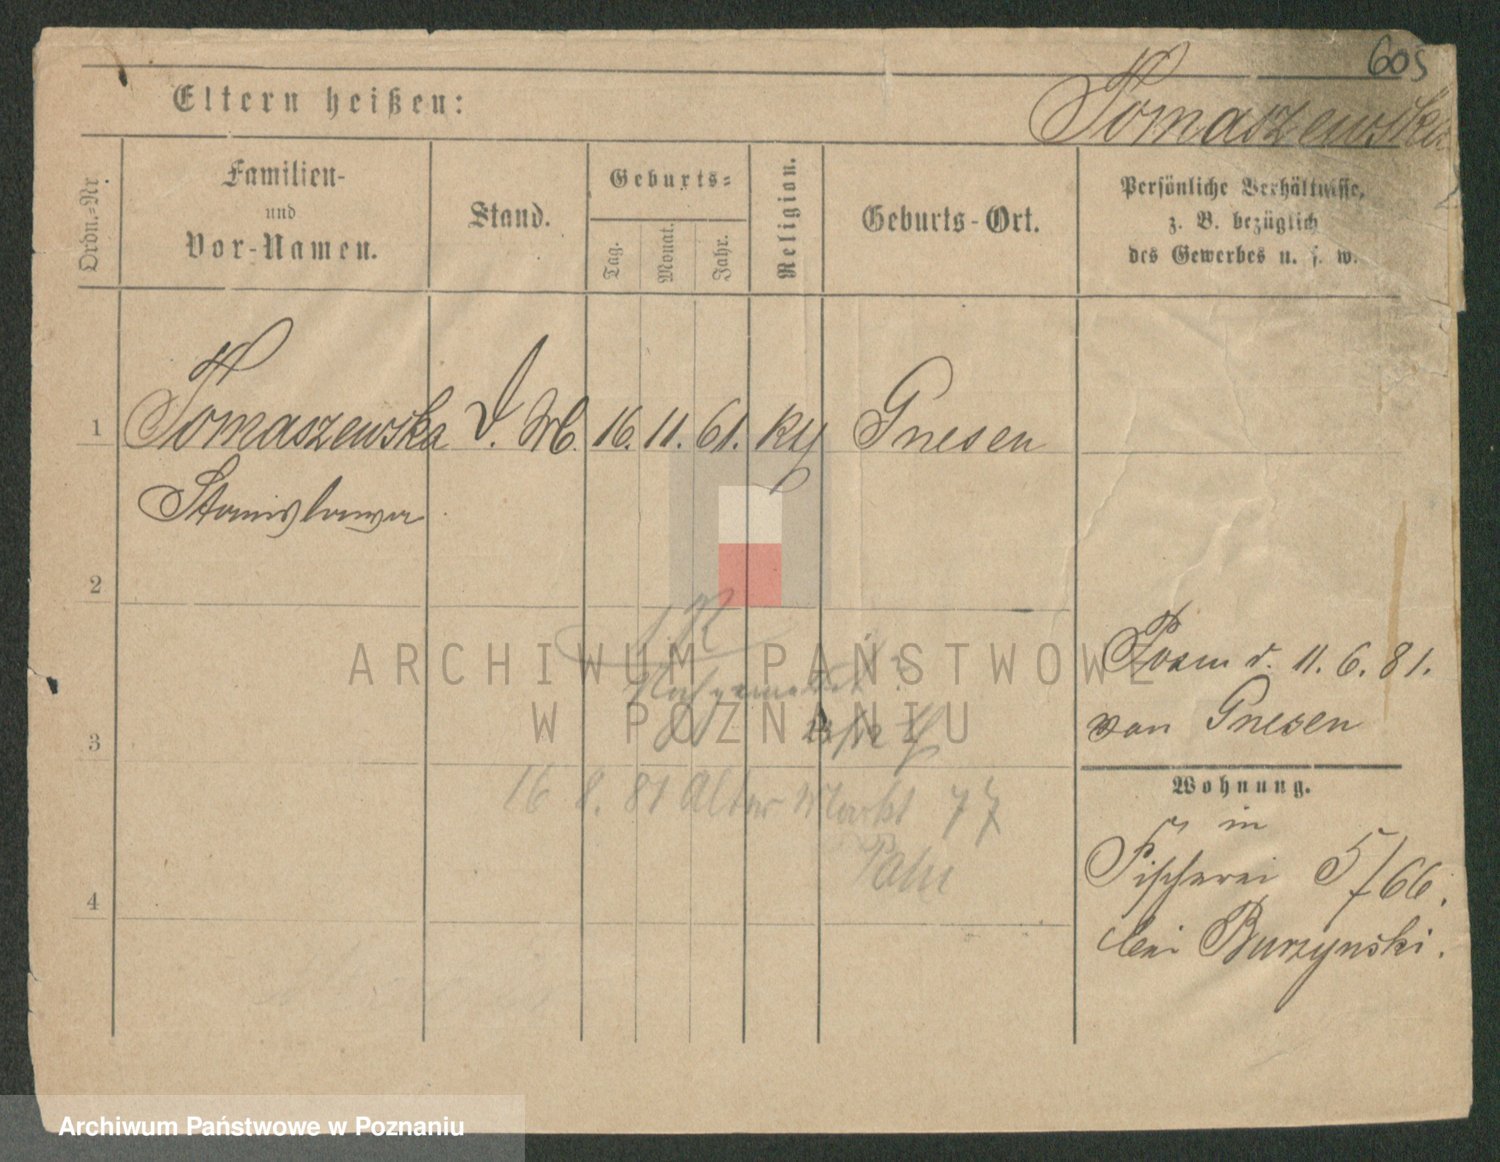 605
Eltern heißen:
Tomaszewska
Ordn.-Nr
Familien-
und
Vor-Namen.
Stand.
Geburts-
Tag.
Monat.
Jahr.
Religion.
Geburts-Ort.
Persönliche Verhältnisse,
z. B. bezüglich
des Gewerbes u. s. w.
1
Tomaszewska D. M. 16. 11. 61. Gnesen
Stanislawa
2
Posen d. 11. 6. 81.
von Gnesen
ARCHIWUM PAŃSTWOWE
W POZNANIU
3
Wohnung.
16 8. 81 Alter Markt 77
in
Fischerei 5/66.
bei Burzynski.
4
Archiwum Państwowe w Poznaniu